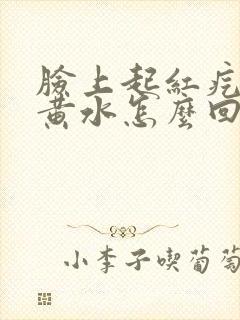 臉上起紅疙
黃水怎麼回
小李子喫葡萄